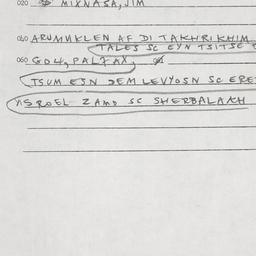 020 MIXNASA, JIM
040 ARUMUKLEN AF DI TAKHRIKHIM
TALES SC EYN TSITSE
060 GO4, PALTAX,
TSUM ESN DEM LEVYOSN SC ERE
YISROEL ZAMD SC SHERBALAKH